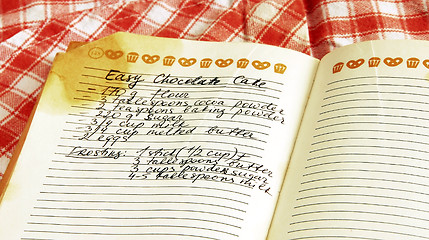 Easy Chocolate Cake
170 g flour
tablespoons cocoa powder
2 teaspoons baking powder
220 g sugar
3/4 cup milk
3/4 cup melted butter
eggs
Frosting: 1 stick (1/2 cup) +
tablespoons butter
3 cups powder sugar
4-5 tablespoons milk